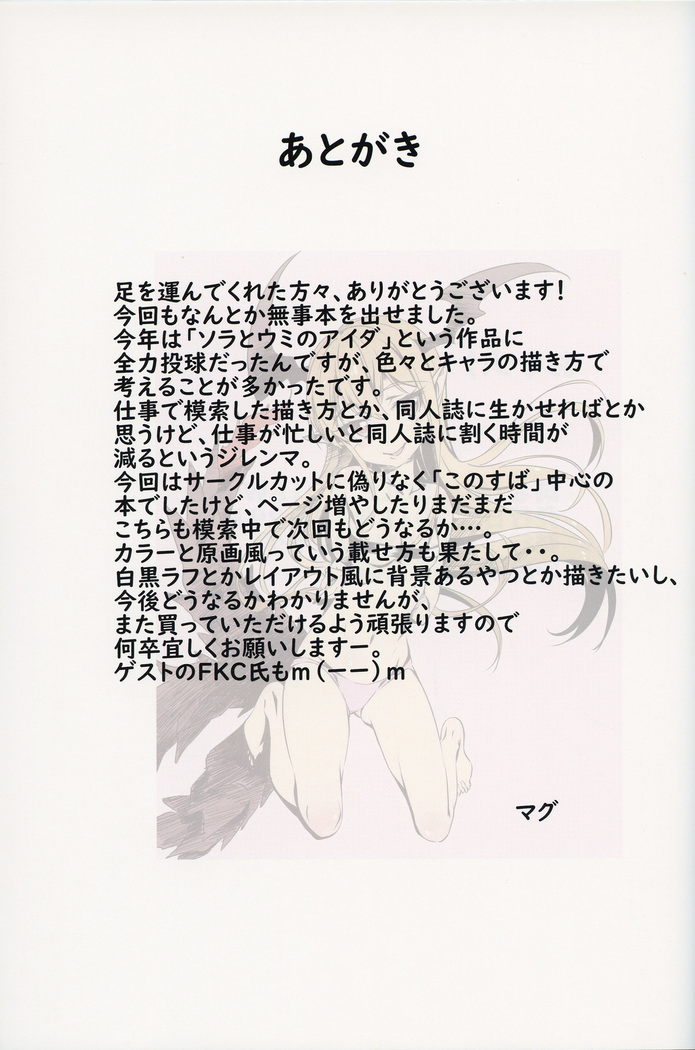 あとがき
足を運んでくれた方々、ありがとうございます！
今回もなんとか無事本を出せました。
今年は「ソラとウミのアイダ」という作品に
全力投球だったんですが、色々とキャラの描き方で
考えることが多かったです。
仕事で模索した描き方とか、同人誌に生かせればとか
思うけど、仕事が忙しいと同人誌に割く時間が
減るというジレンマ。
今回はサークルカットに偽りなく「このすば」中心の
本でしたけど、ページ増やしたりまだまだ
こちらも模索中で次回もどうなるか…。
カラーと原画風っていう載せ方も果たして・・。
白黒ラフとかレイアウト風に背景あるやつとか描きたいし、
今後どうなるかわかりませんが、
また買っていただけるよう頑張りますので
何卒宜しくお願いしますー。
ゲストのFKC氏もm（ーー）m
マグ